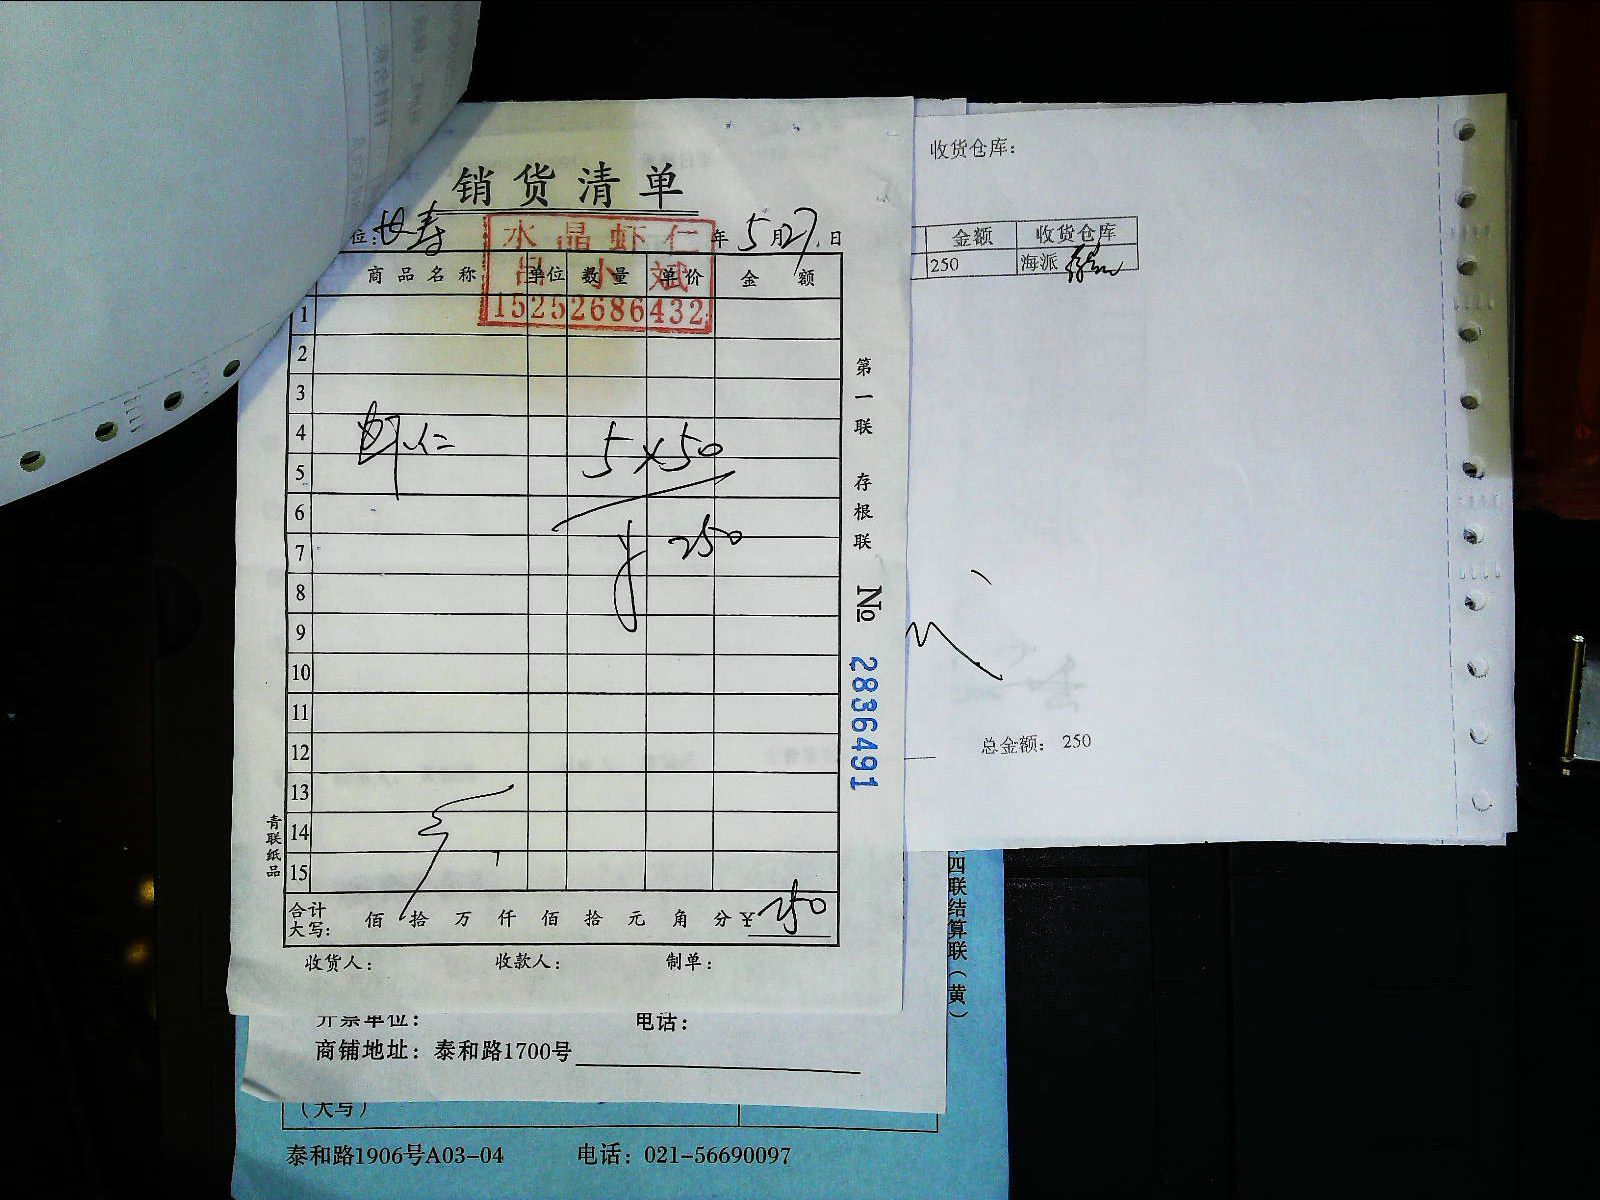 销货清单
位:长寿 年5月27日
水晶虾仁
吕小斌
15252686432
商品名称 单位 数量 单价 金额
1
2
3
4
虾仁 5×50
5
6
¥250
7
8
9
10
11
12
13
14
15
合计大写: 佰拾万仟佰拾元角分¥250
收货人: 收款人: 制单:
第一联 存根联 № 2836491
青联纸品
收货仓库:
金额 收货仓库
250 海派
总金额: 250
开票单位: 电话:
商铺地址: 泰和路1700号
四联结算联(黄)
(大写)
泰和路1906号A03-04 电话: 021-56690097